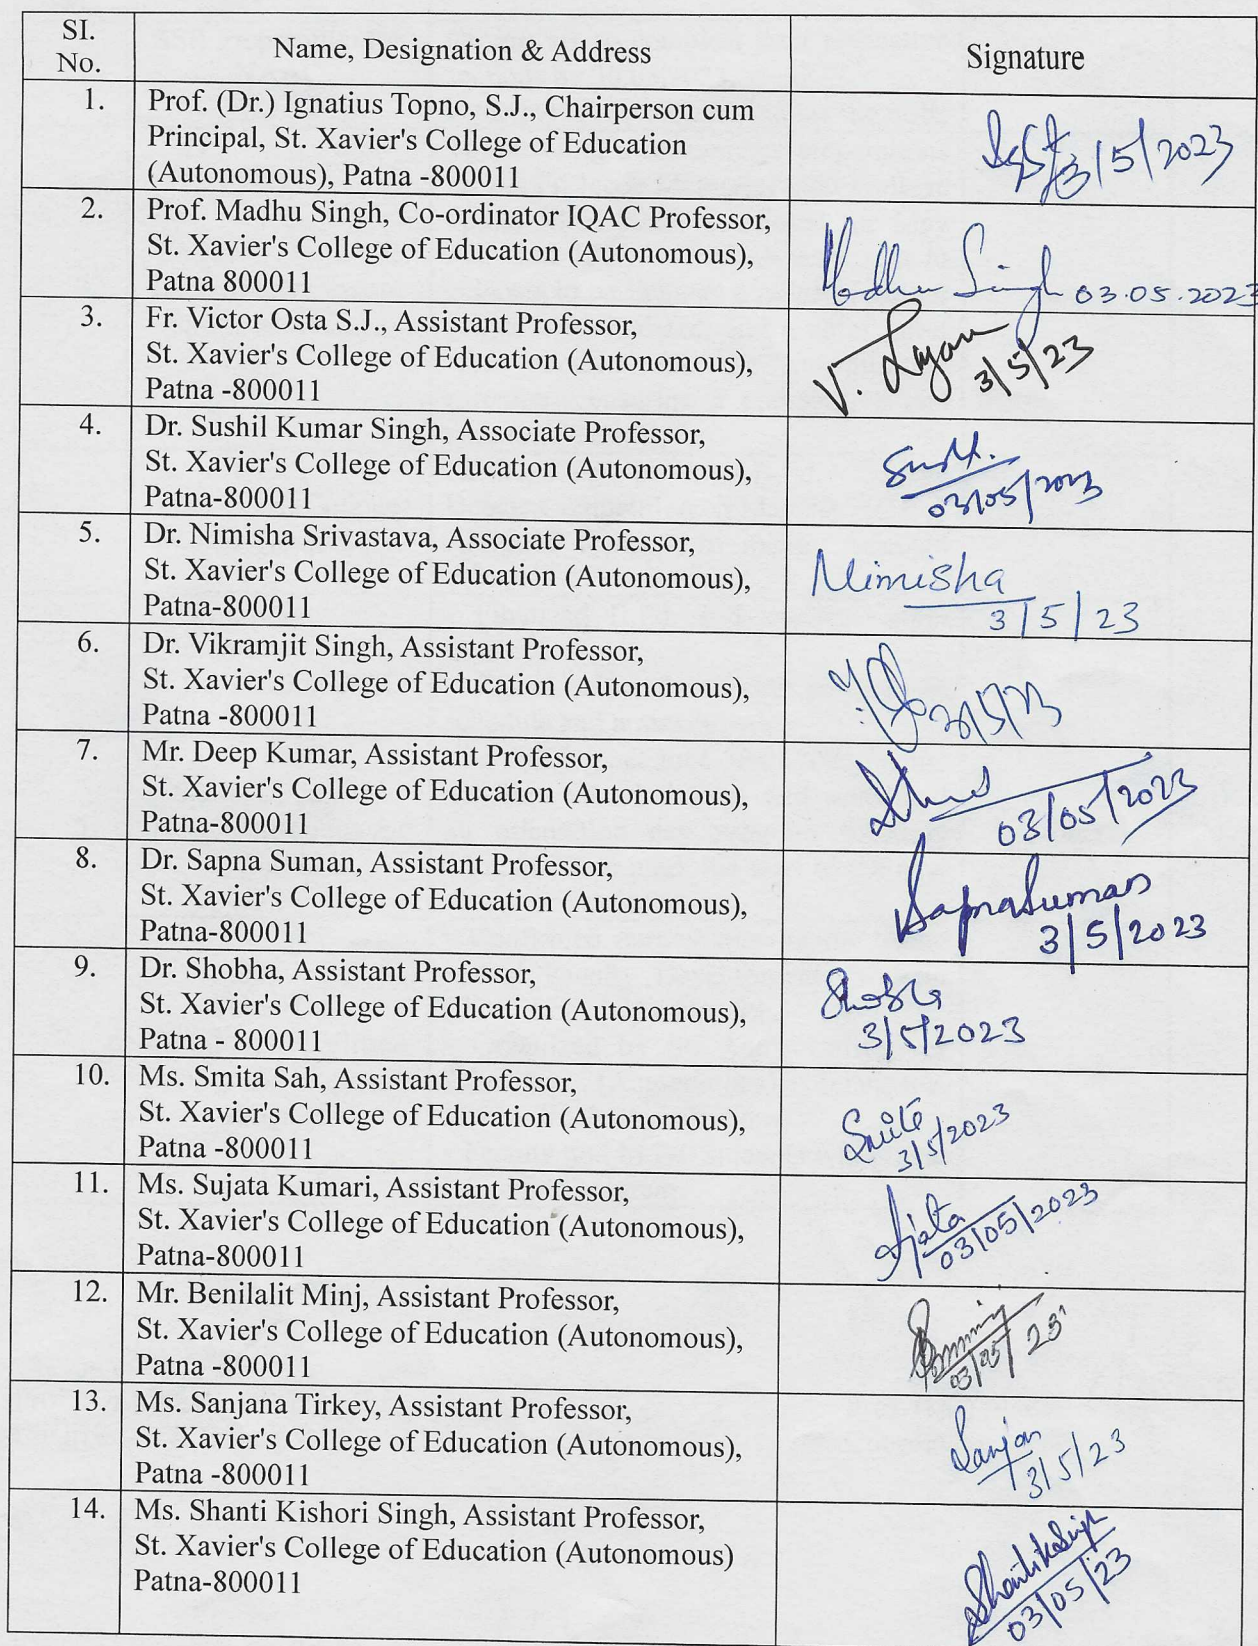 SI.
No.
Name, Designation & Address
Signature
1.
Prof. (Dr.) Ignatius Topno, S.J., Chairperson cum
Principal, St. Xavier's College of Education
(Autonomous), Patna -800011
3/5/2023
2.
Prof. Madhu Singh, Co-ordinator IQAC Professor,
St. Xavier's College of Education (Autonomous),
Patna 800011
Madhu Singh 03.05.2023
3.
Fr. Victor Osta S.J., Assistant Professor,
St. Xavier's College of Education (Autonomous),
Patna -800011
V.
3/5/23
4.
Dr. Sushil Kumar Singh, Associate Professor,
St. Xavier's College of Education (Autonomous),
Patna-800011
03/05/2023
5.
Dr. Nimisha Srivastava, Associate Professor,
St. Xavier's College of Education (Autonomous),
Patna-800011
Nimisha
3/5/23
6.
Dr. Vikramjit Singh, Assistant Professor,
St. Xavier's College of Education (Autonomous),
Patna -800011
7.
Mr. Deep Kumar, Assistant Professor,
St. Xavier's College of Education (Autonomous),
Patna-800011
03/05/2023
8.
Dr. Sapna Suman, Assistant Professor,
St. Xavier's College of Education (Autonomous),
Patna-800011
Sapna Suman
3/5/2023
9.
Dr. Shobha, Assistant Professor,
St. Xavier's College of Education (Autonomous),
Patna - 800011
Shobha
3/5/2023
10.
Ms. Smita Sah, Assistant Professor,
St. Xavier's College of Education (Autonomous),
Patna -800011
Smita
3/5/2023
11.
Ms. Sujata Kumari, Assistant Professor,
St. Xavier's College of Education (Autonomous),
Patna-800011
03/05/2023
12.
Mr. Benilalit Minj, Assistant Professor,
St. Xavier's College of Education (Autonomous),
Patna -800011
03/05/23
13.
Ms. Sanjana Tirkey, Assistant Professor,
St. Xavier's College of Education (Autonomous),
Patna -800011
3/5/23
14.
Ms. Shanti Kishori Singh, Assistant Professor,
St. Xavier's College of Education (Autonomous)
Patna-800011
Shanti K Singh
03/05/23